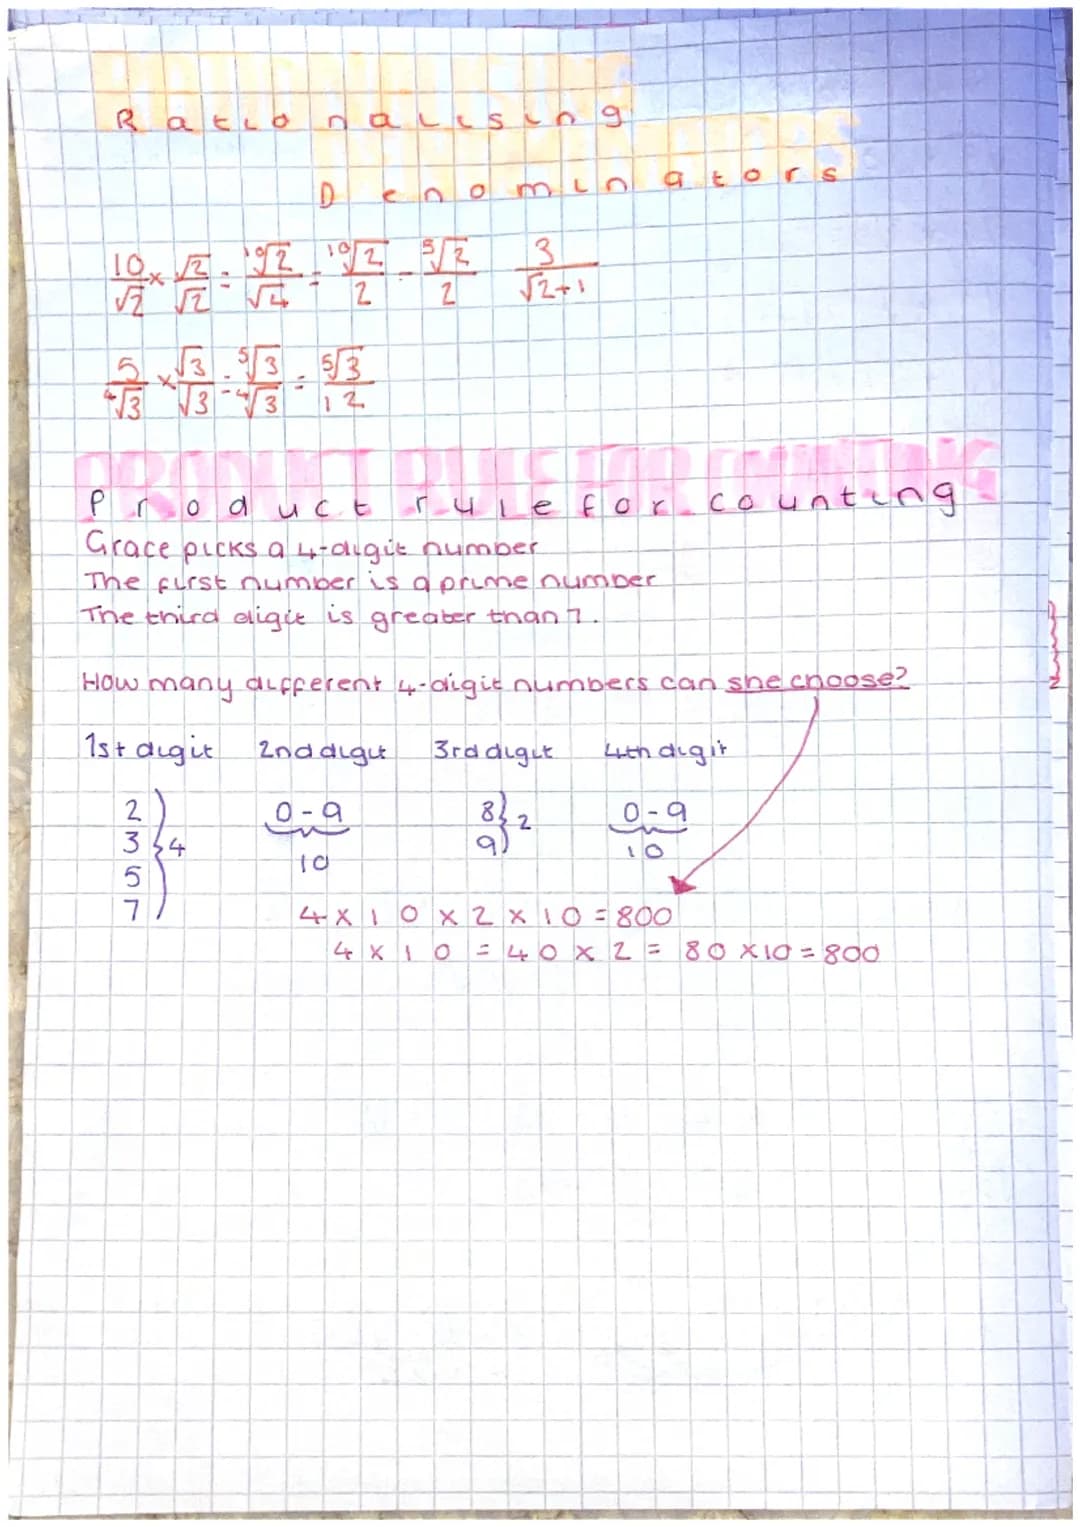 Rationalising
Denominators
10/√2 × √2/√2 = 10√2/√4 = 10√2/2 = 5√2/2   3/(√2+1)
5/4√3 × √3/√3 = 5√3/4√3 = 5√3/12
PRODUCT RULE FOR COUNTING
Product rule for counting
Grace picks a 4-digit number
The first number is a prime number
The third digit is greater than 7.
How many different 4-digit numbers can she choose?
1st digit 2nd digit 3rd digit 4th digit
2 0-9 8 2 0-9
3 4 9
5 10 10
7
4 × 10 × 2 × 10 = 800
4 × 10 = 40 × 2 = 80 × 10 = 800